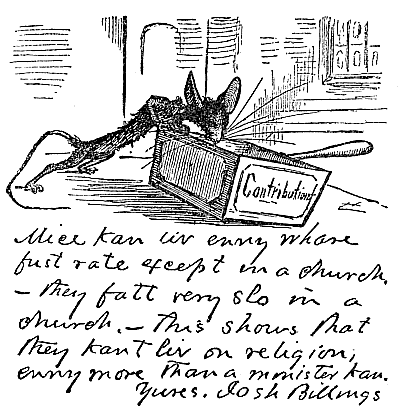 Contributions
Mice kan liv enny whare
fust rate except in a church.
– they fatt very slo in a
church. – this shows that
they kant liv on religion,
enny more than a minister kan.
Yures. Josh Billings